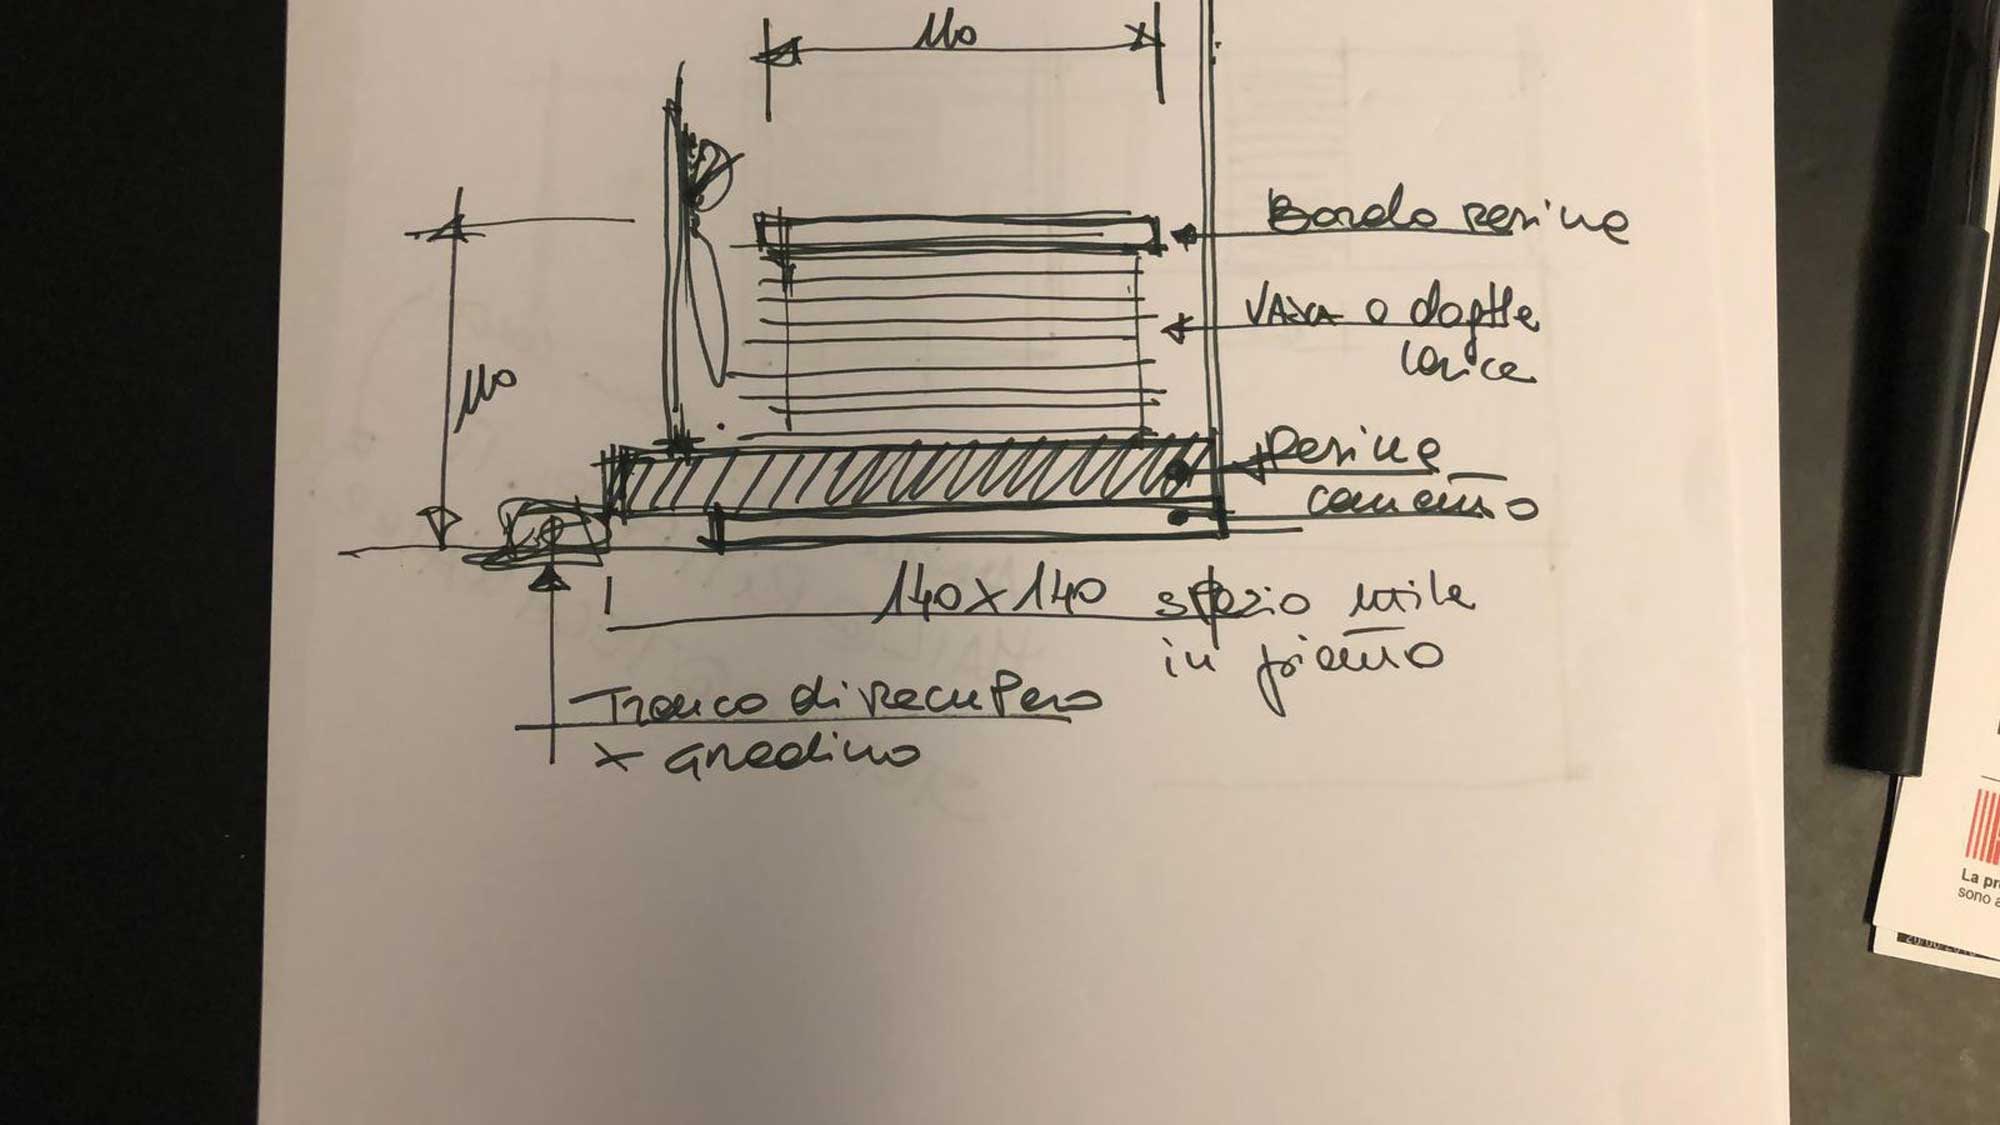 110
Bordo resina
Vasca o doghe
larice
110
Resina
cemento
140x140 spazio utile
in pianto
Tronco di recupero
x gradino
La pr
sono a